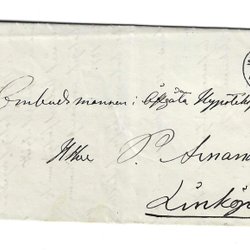 Ombudsmannen i Östgöta Hypoteks
Herr P. 
Linköp